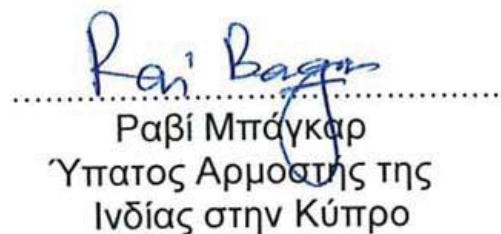 Ραβί Μπάγκαρ
Ύπατος Αρμοστής της
Ινδίας στην Κύπρο